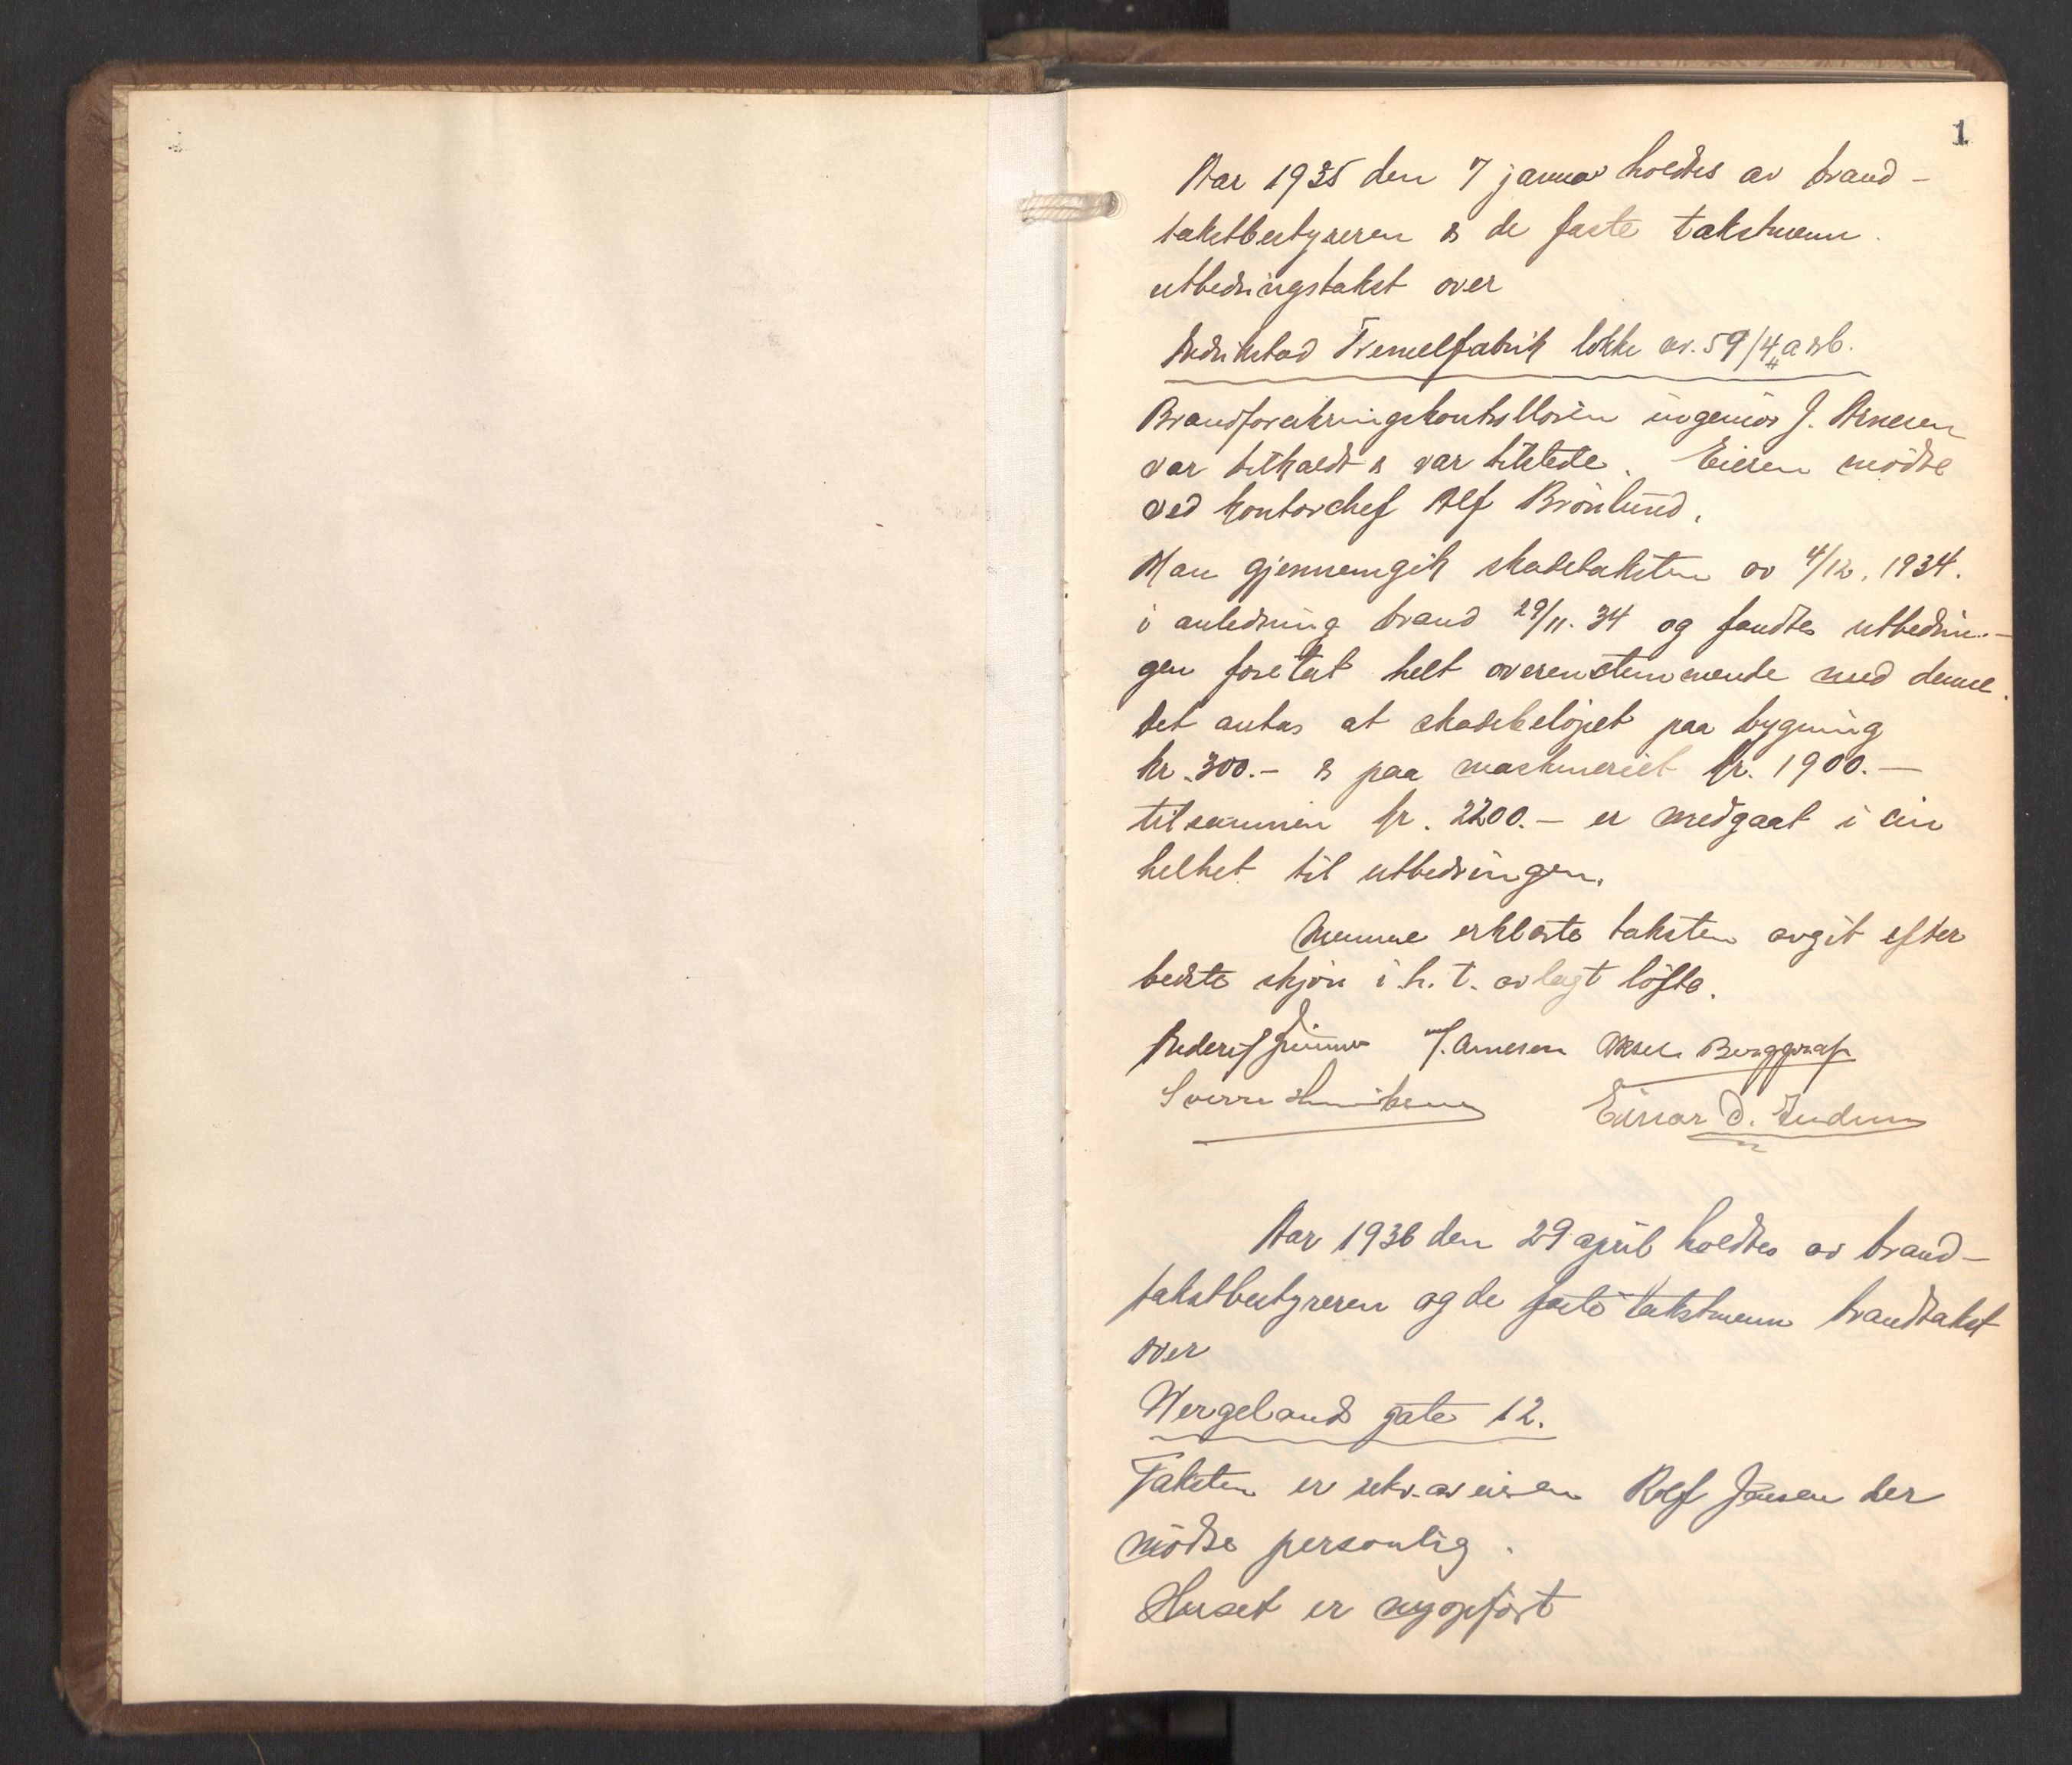 1
Aar 1935 den 7 januar holdtes av brand-
takstbestyreren & de faste takstmenn
utbedringstakst over
Fredrikstad Tremelfabrik løkke nr. 59/4 a & b.
Brandforsikringskontrolløren ingeniør J. Arnesen
var tilkaldt & var tilstede. Eieren mødte
ved kontorchef Alf Brönlund.
Man gjennemgik skadetaksten av 4/12. 1934.
i anledning brand 29/11. 34 og fandtes utbedrin-
gen foretat helt overenstemmende med denne.
Det antas at skadebeløpet paa bygning
kr. 300.- & paa maskineriet kr. 1900.-
tilsammen kr. 2200.- er medgaat i sin
helhet til utbedringen.
Mennene erklærte taksten avgit efter
bedste skjøn i h. t. avlagt løfte.
J. Arnesen Aksel Berggraf
Sverre Henriksen Einar D.
Aar 1936 den 29 april holdtes av brand-
takstbestyreren og de faste takstmenn brandtakst
over
Wergelands gate 12.
Taksten er rekv. av eieren Rolf Jensen der
mødte personlig.
Huset er nyopført